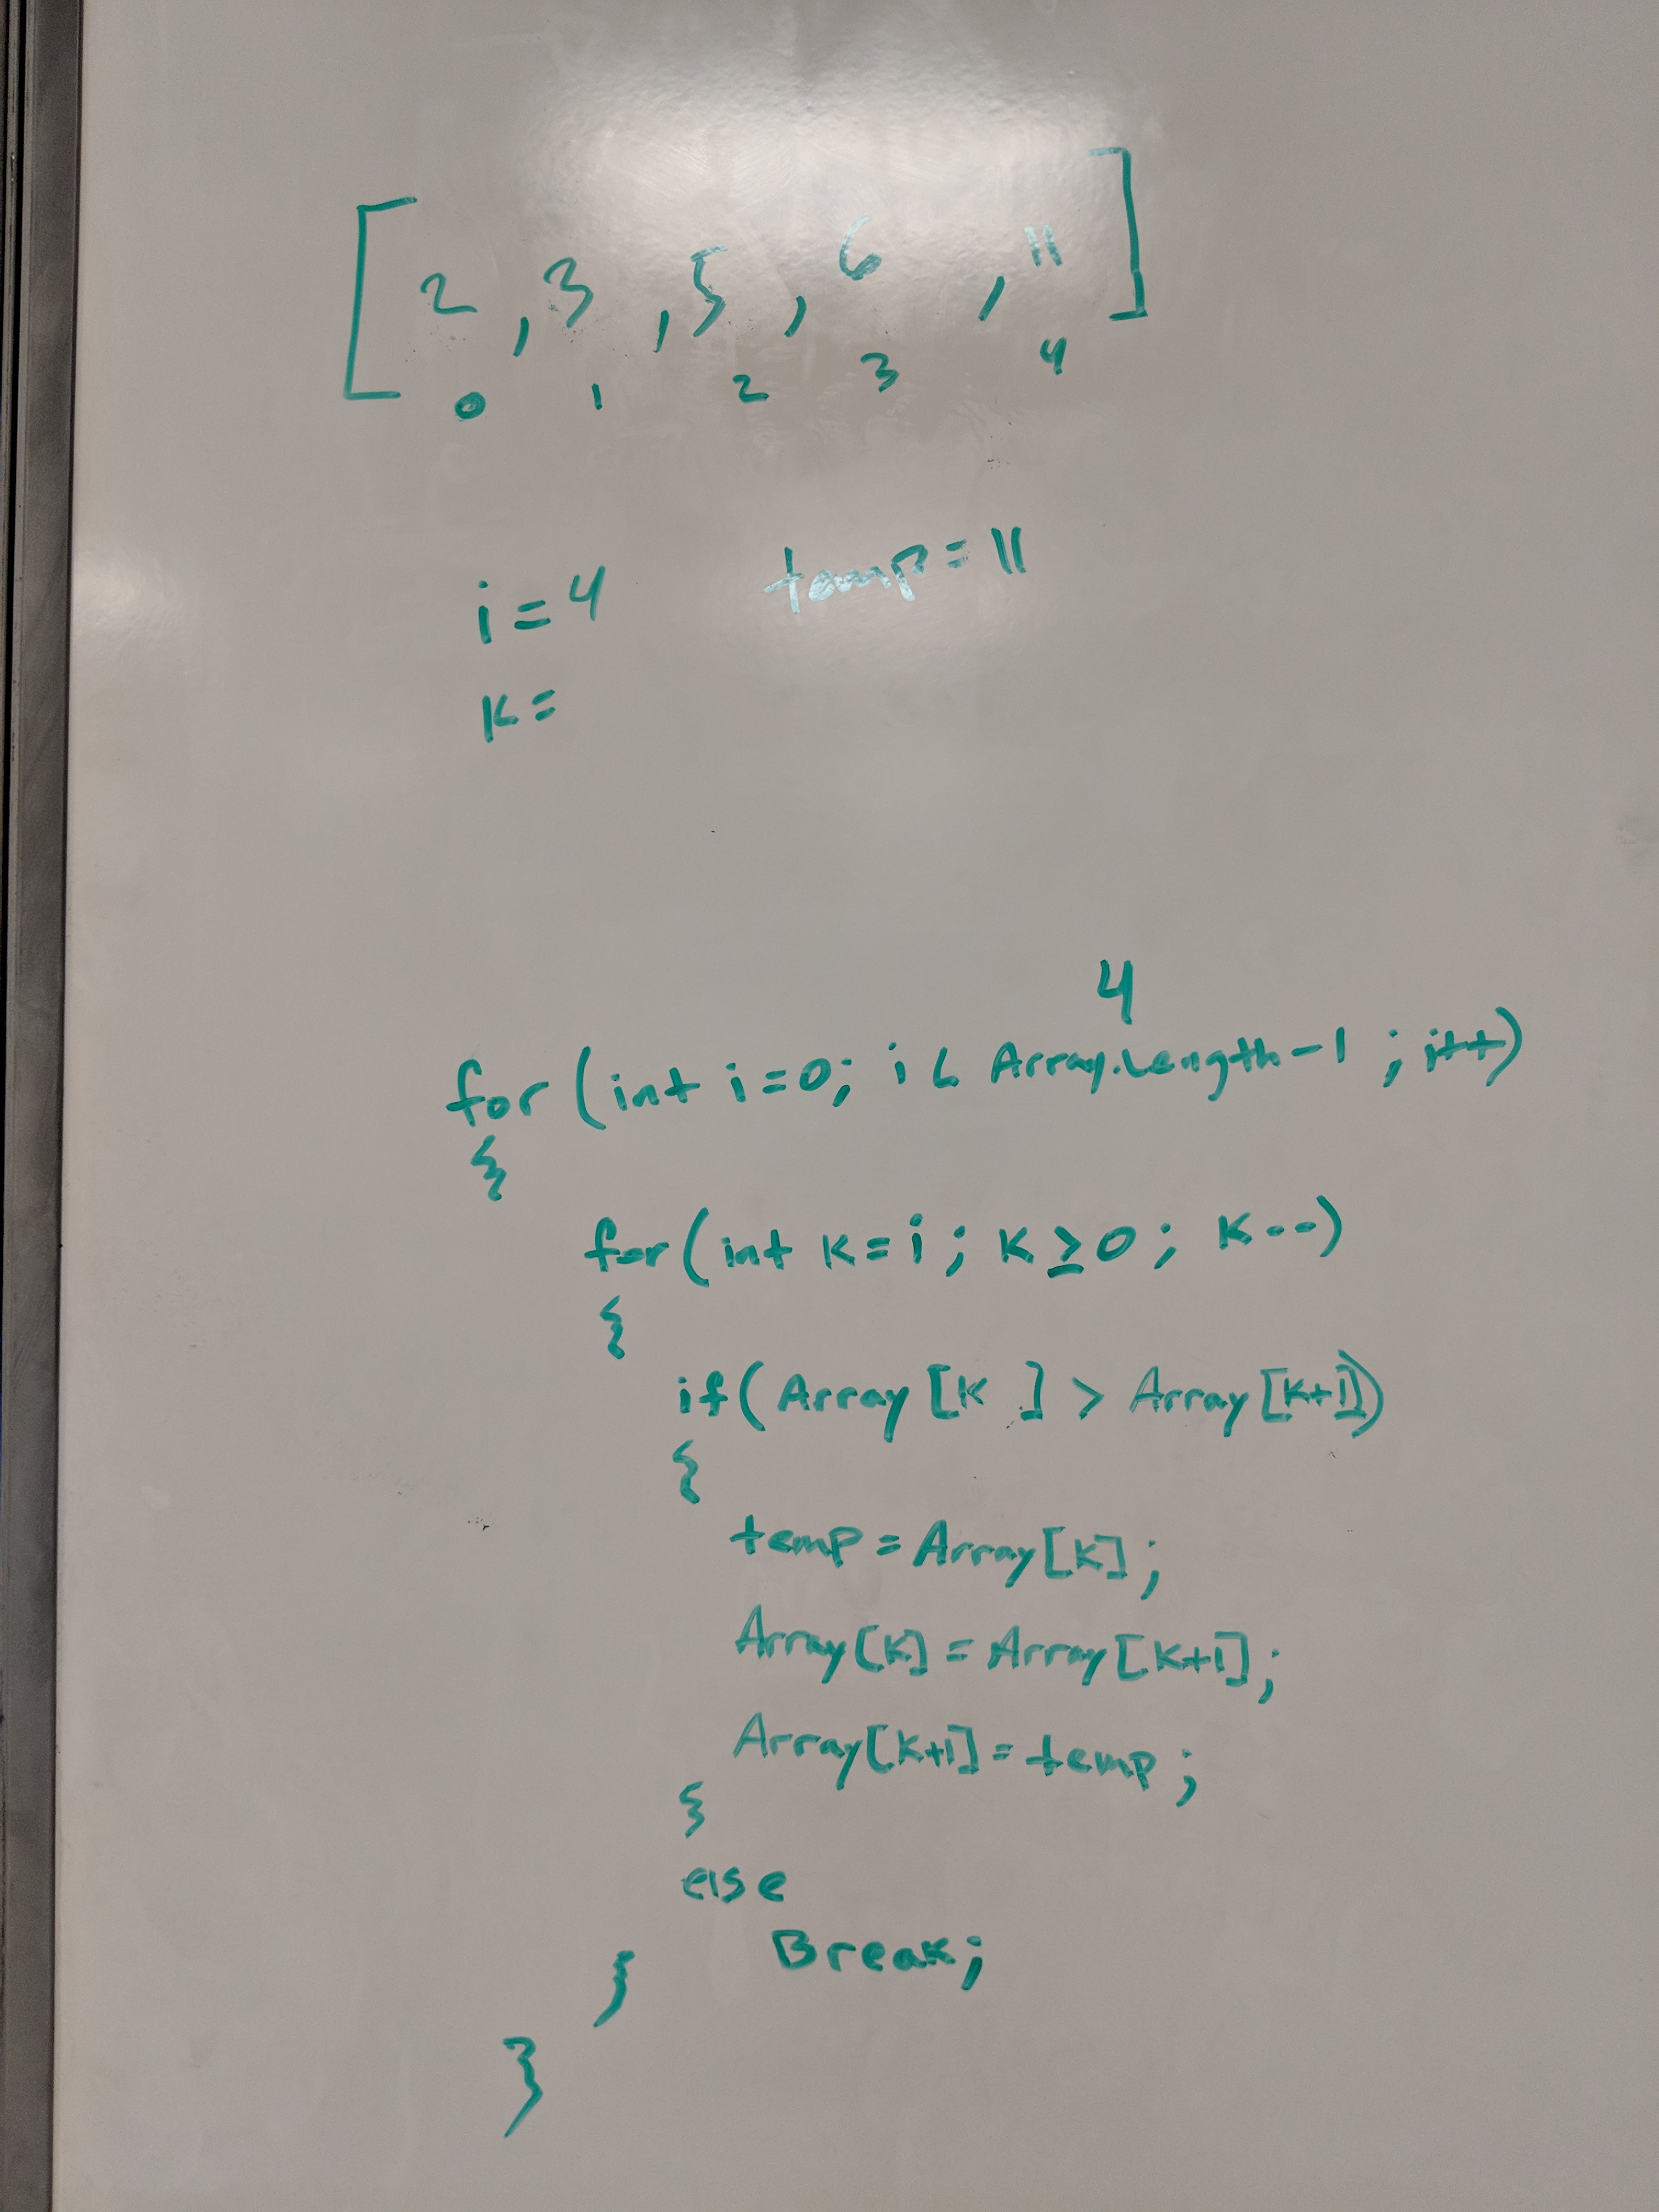 [ 2 , 3 , 5 , 6 , 11 ]
0 1 2 3 4
i = 4 temp = 11
K =
4
for (int i=0; i < Array.Length-1 ; i++)
{
for (int K=i ; K ≥ 0 ; K--)
{
if( Array [K ] > Array [K+1])
{
temp = Array [K] ;
Array [K] = Array [K+1] ;
Array [K+1] = temp ;
}
else
Break;
}
}